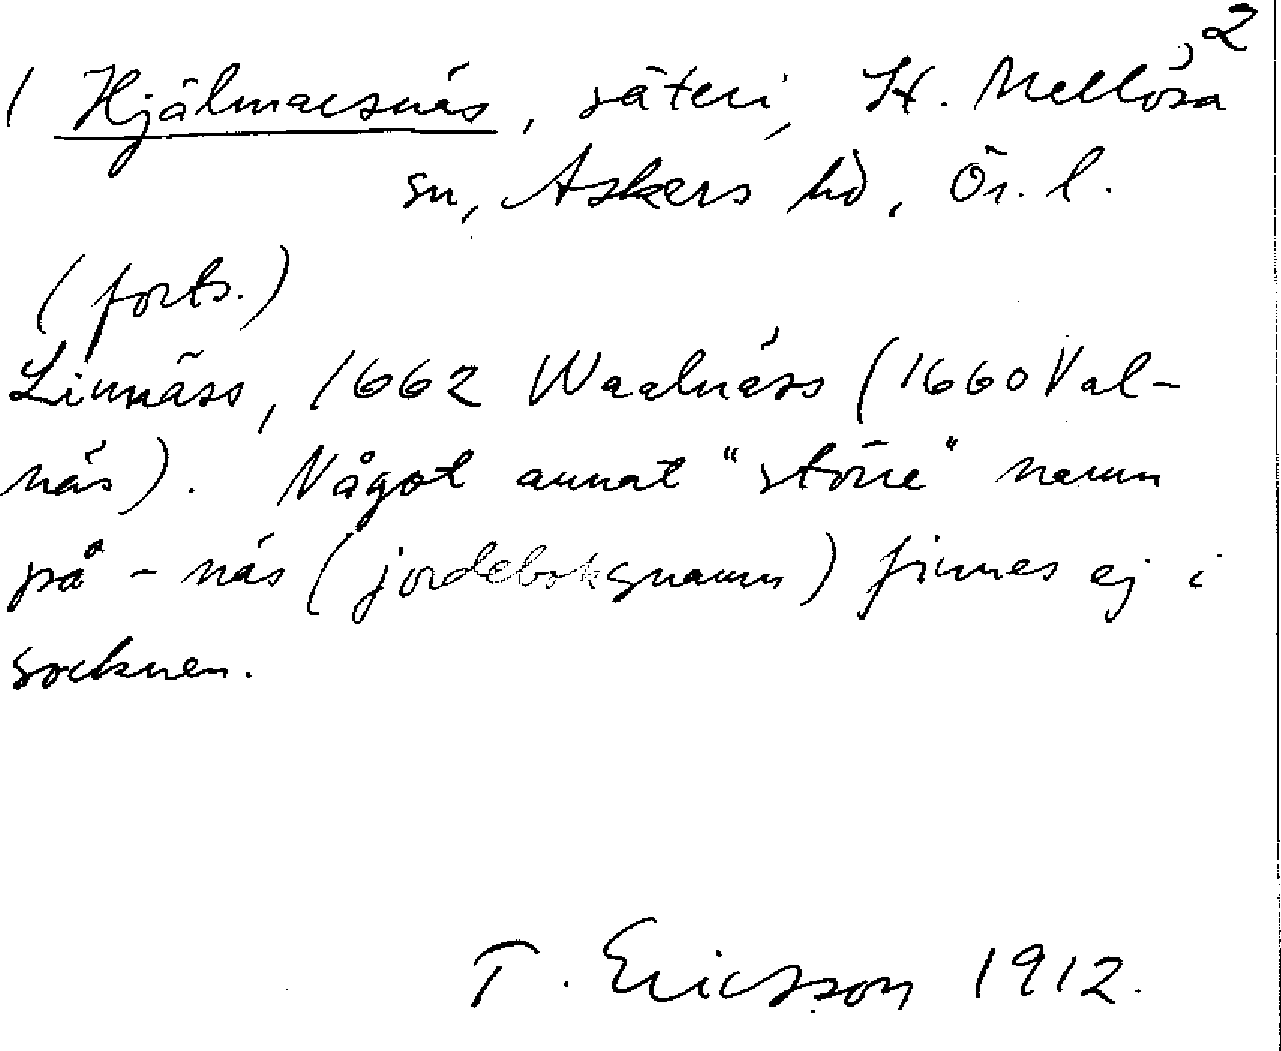 2
1 Hjälmarsnäs, säteri, St. Mellösa
sn, Askers hd, Ör. l.
(forts.)
Linnäss, 1662 Waalnäss (1660 Val-
näs). Något annat "större" namn
på -näs (jordeboksnamn) finnes ej i
socknen.
T. Ericsson 1912.